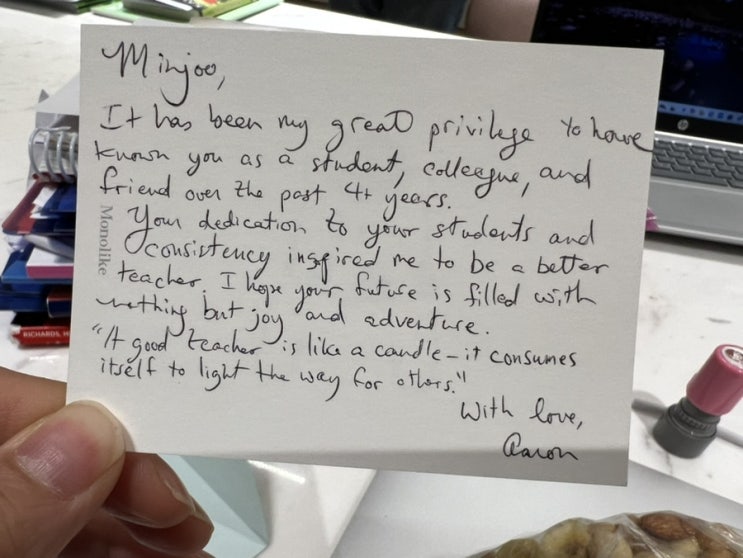 Minjoo,
It has been my great privilege to have
known you as a student, colleague, and
friend over the past 4+ years.
Your dedication to your students and
consistency inspired me to be a better
teacher. I hope your future is filled with
nothing but joy and adventure.
"A good teacher is like a candle – it consumes
itself to light the way for others."
With love,
Aaron
Monolike
RICHARDS, H
hp